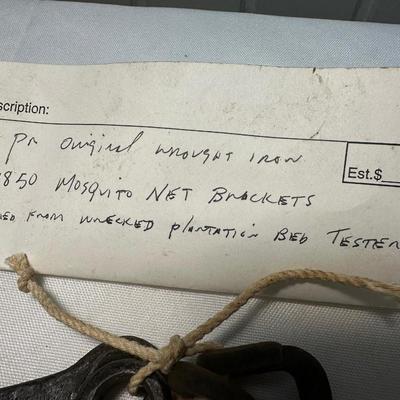 scription:
Pr Original Wrought Iron
Est.$
1850 Mosquito Net Brackets
From Wrecked Plantation Bed Tester